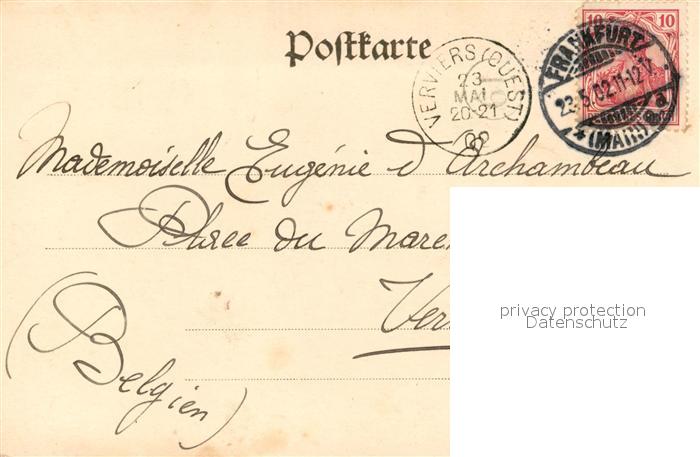 Postkarte
10 10
VERVIERS (OUEST)
23
MAI
20-21
02
FRANKFURT
23.5.02.11-12
a
* (MAIN)
Mademoiselle Eugénie d'Archambeau
Place du
Ver
(Belgien)
privacy protection
Datenschutz